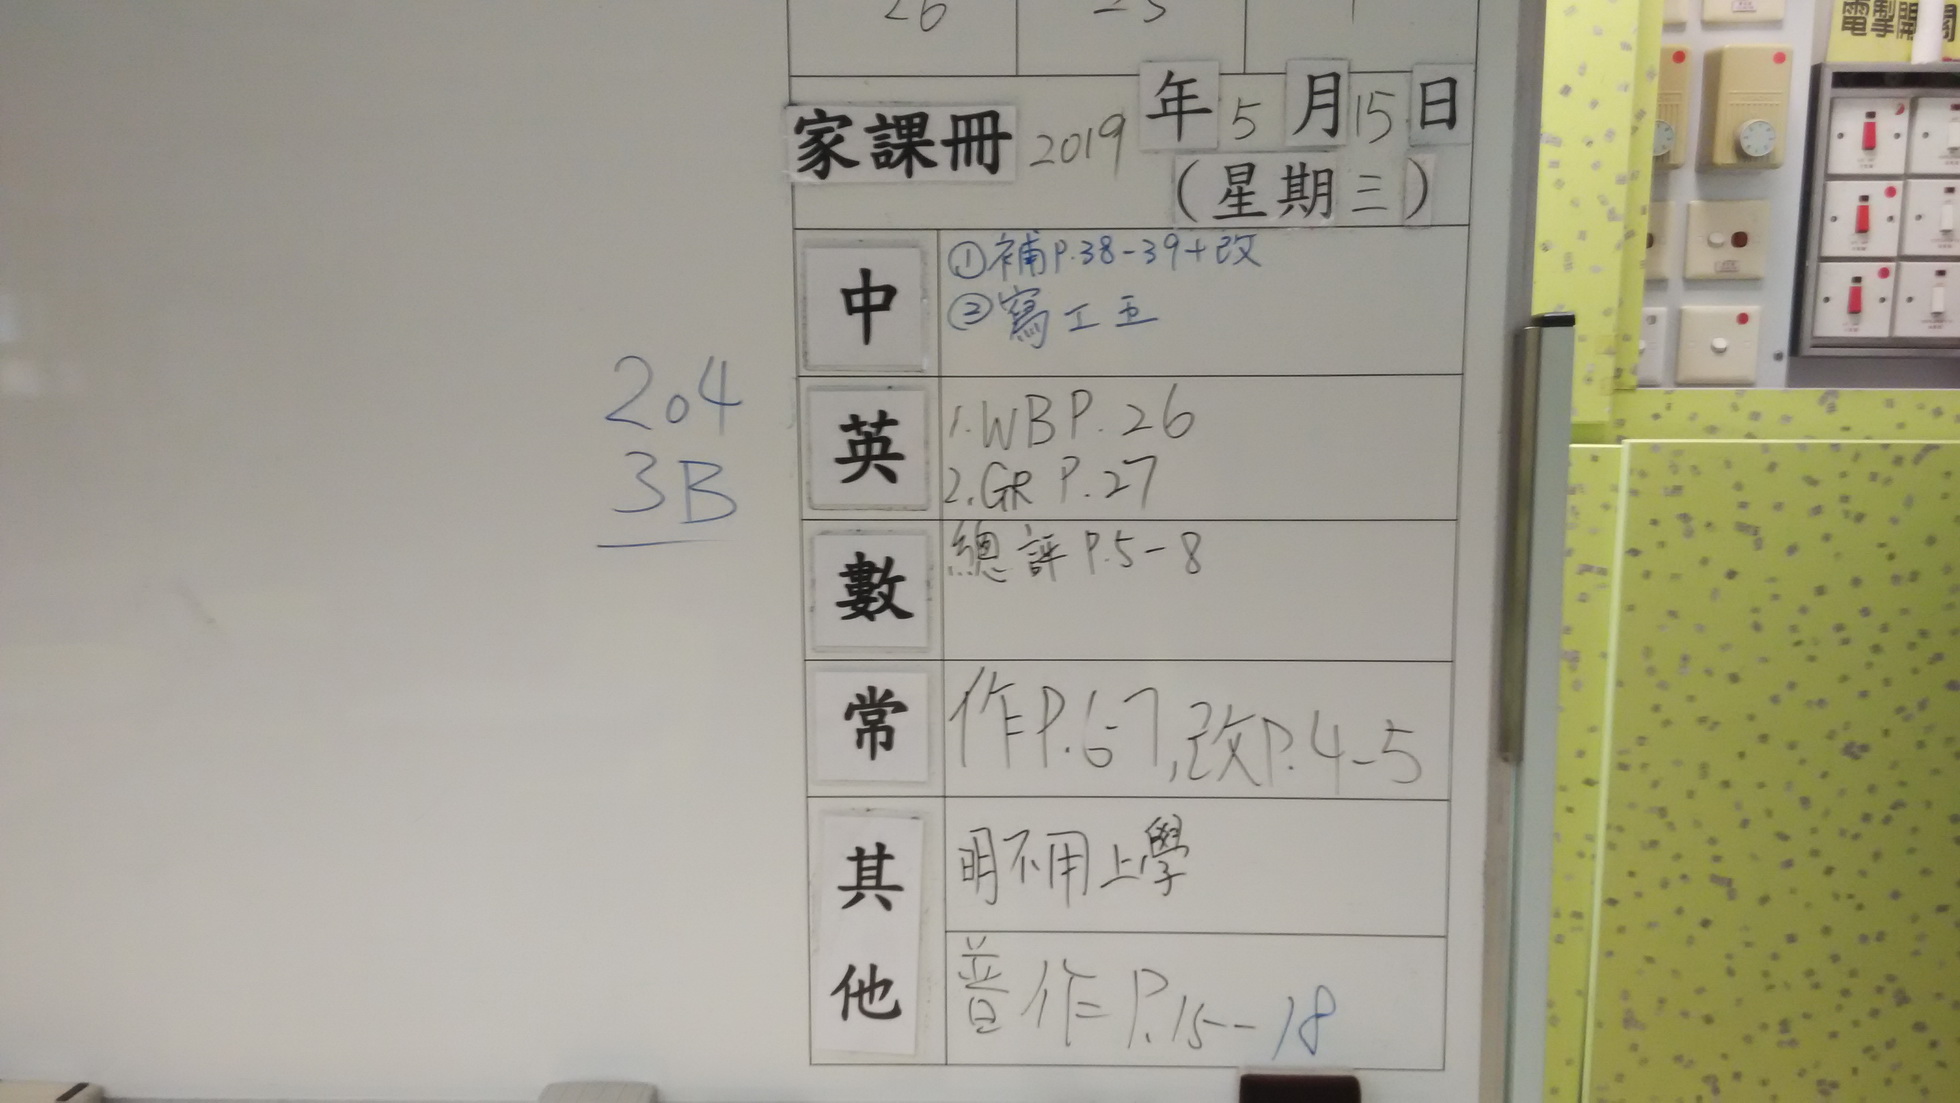 26
電掣開關
家課冊 2019 年 5 月 15 日
(星期三)
中
①補P.38-39+改
②寫工五
204
3B
英
1.WB P.26
2.GR P.27
數
總評 P.5-8
常
作P.6-7,改P.4-5
其他
明不用上學
普作P.15-18